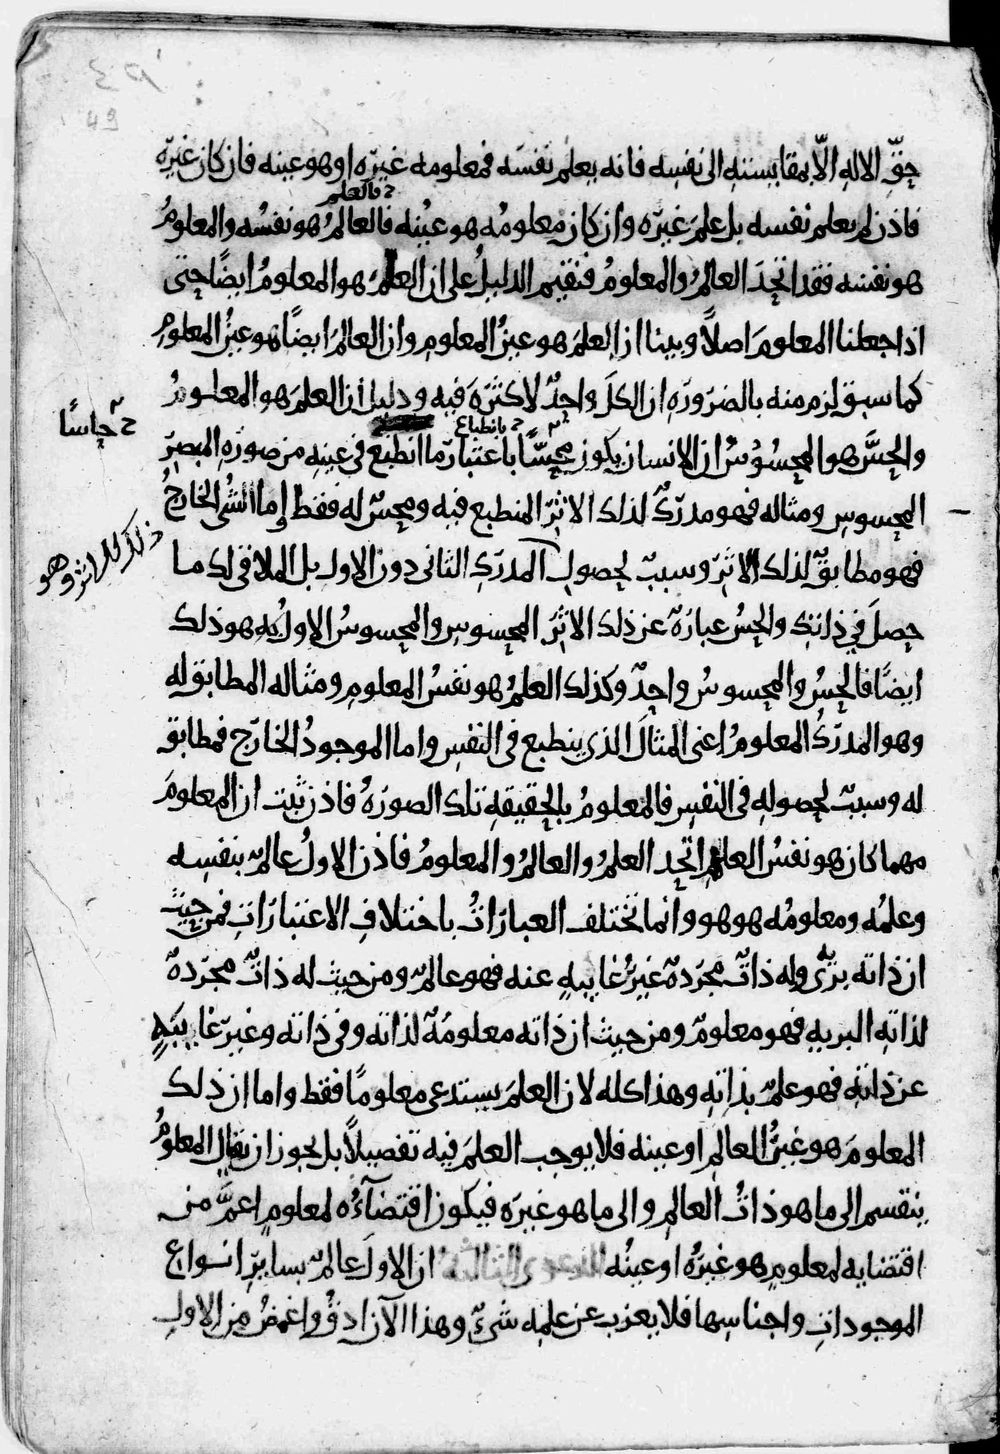 حق الاله الا بمقايسته الى نفسه فانه يعلم نفسه فمعلومه غيره او هو عينه فان كان غيره
فالعلم
فاذن لم يعلم نفسه بل علم غيره وان كان معلومه هو عينه فالعالم هو نفسه والمعلوم
هو نفسه فقد اتحد العالم والمعلوم فنقيم الدليل على ان العلم هو المعلوم ايضا حتى
اذا جعلنا المعلوم اصلا وبينا ان العلم هو عين المعلوم وان العالم ايضا هو عين المعلوم
كما سبق لزم منه بالضرورة ان الكل واحد لا كثرة فيه ودليل ان العلم هو المعلوم
حاسا
بانطباع
والحس هو المحسوس ان الانسان يكون محسا باعتبار ما انطبع في عينه من صورة المبصر
المحسوس ومثاله فهو مدرك لذلك الاثر المنطبع فيه ومحس له فقط اما الشي الخارج
ذلك الاثر وهو
فهو مطابق لذلك الاثر وسبب لحصول المدرك الثاني دون الاول بل الملاقى لك ما
حصل في ذاتك والحس عبارة عن ذلك الاثر المحسوس والمحسوس الاول به هو ذلك
ايضا فالحس والمحسوس واحد وكذلك العلم هو نفس المعلوم ومثاله المطابق له
وهو المدرك المعلوم اعنى المثال الذي ينطبع في النفس واما الموجود الخارج فمطابق
له وسبب لحصوله في النفس فالمعلوم بالحقيقة تلك الصورة فاذن ثبت ان المعلوم
مهما كان هو نفس العالم اتحد العلم والعالم والمعلوم فاذن الاول عالم بنفسه
وعلمه ومعلومه هو هو وانما تختلف العبارات باختلاف الاعتبارات فمن حيث
ان ذاته برى وله ذات مجردة غير غايبة عنه فهو عالم ومن حيث له ذات مجردة
لذاته البرية فهو معلوم ومن حيث ان ذاته معلومة لذاته وفي ذاته وغير غايبة
عن ذاته فهو علم بذاته وهذا كله لان العلم يستدعى معلوما فقط واما ان ذلك
المعلوم هو غير العالم او عينه فلا يوجب العلم فيه تفصيلا بل يجوز ان يقال المعلوم
ينقسم الى ما هو ذات العالم والى ما هو غيره فيكون اقتضاؤه لمعلوم اعم من
اقتضايه لمعلوم هو غيره او عينه الدعوى الثالثة ان الاول عالم بساير انواع
الموجودات واجناسها فلا يعزب عن علمه شئ وهذا الآن ادق واغمض من الاول